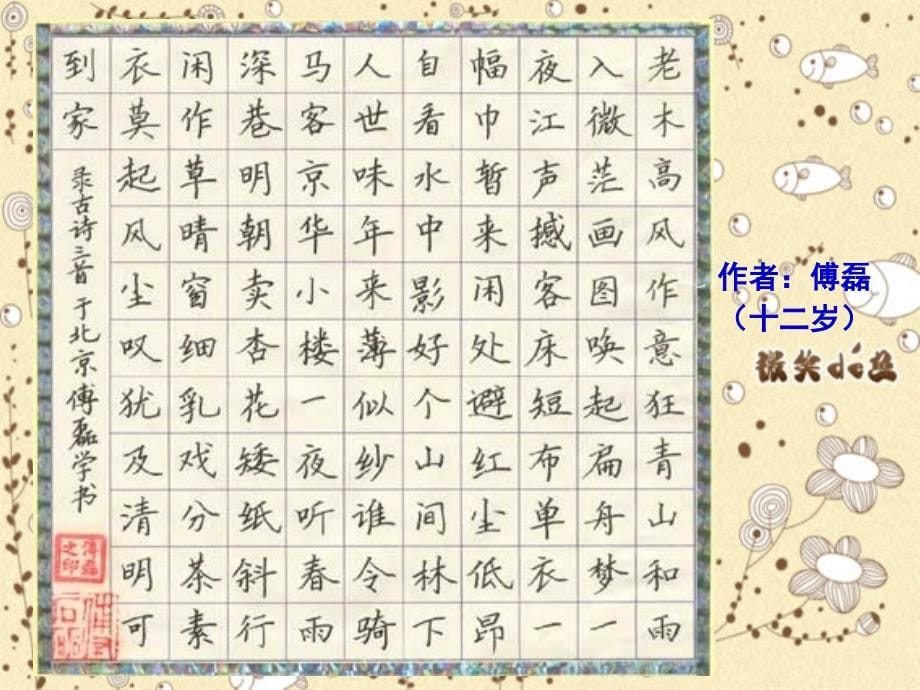 老木高风作意狂青山和雨
入微茫画图唤起扁舟梦一
夜江声撼客床短布单衣一
幅巾暂来闲处避红尘低昂
自看水中影好个山间林下
人世味年来薄似纱谁令骑
马客京华小楼一夜听春雨
深巷明朝卖杏花矮纸斜行
闲作草晴窗细乳戏分茶素
衣莫起风尘叹犹及清明可
到家
录古诗三首于北京傅磊学书
傅磊之印
作者：傅磊
（十二岁）
微笑小鱼